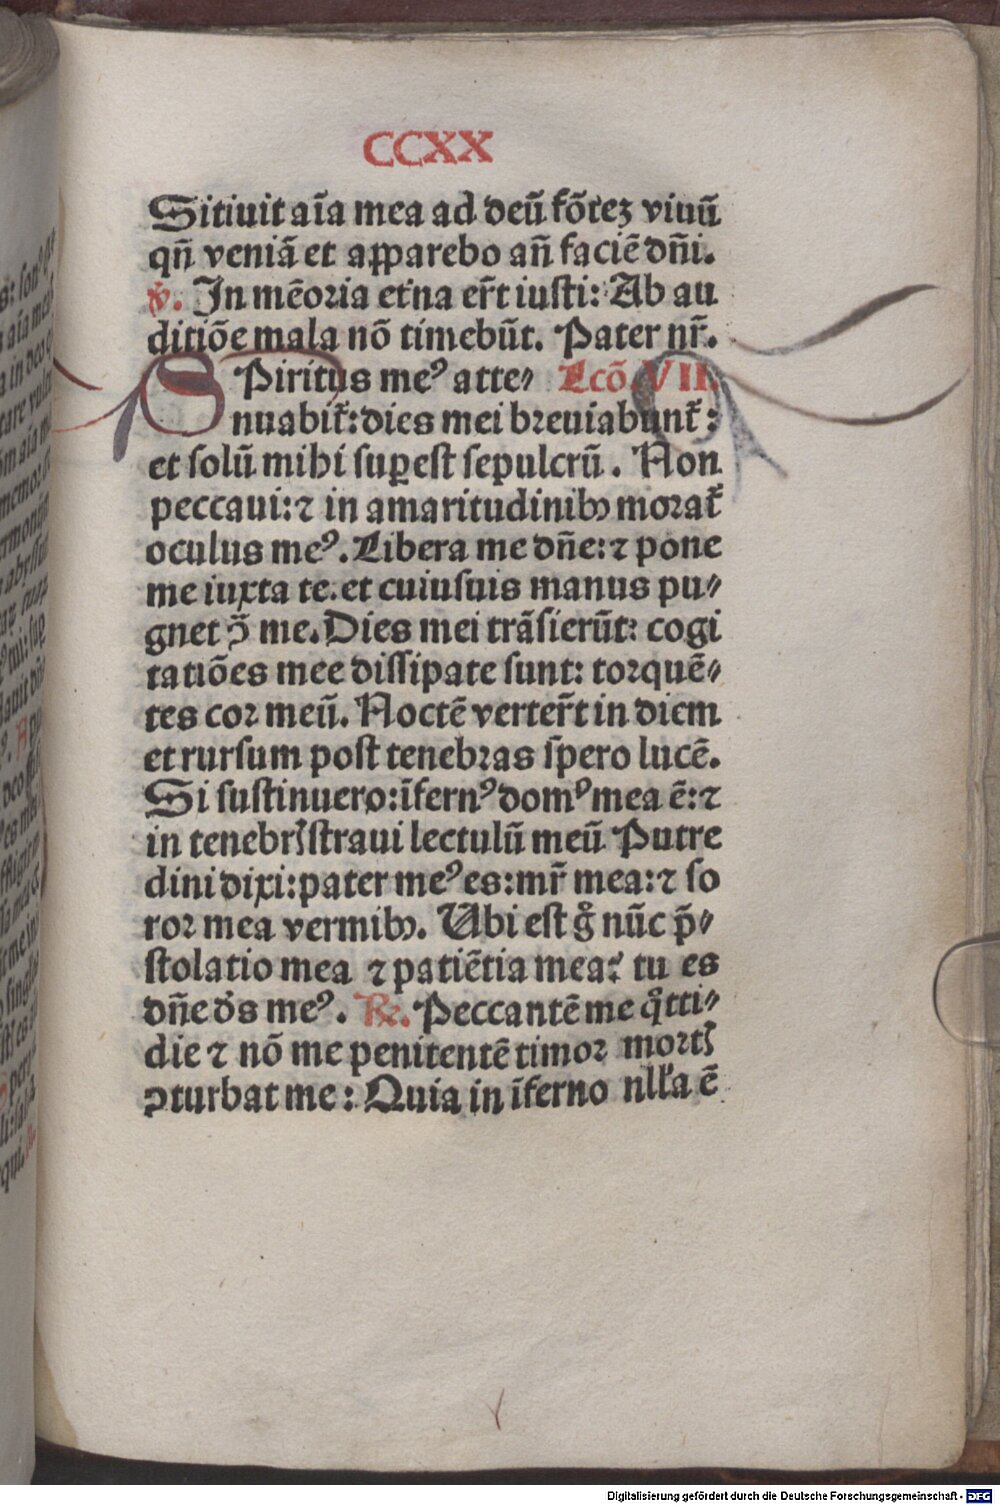 CCXX
Sitiuit aĩa mea ad deũ fõteʒ viuũ
qñ veniã et apparebo añ faciẽ dñi.
℣. In mẽoria et'na er̃t iusti: Ab au
ditiõe mala nõ timebũt. Pater nr̃.
SPiritus meꝰ atte⸗ Lcõ. VII.
nuabit̃: dies mei breuiabunt̃:
et solũ mihi suꝑest sepulcrũ. Non
peccaui: ⁊ in amaritudinibꝰ morat̃
oculus meꝰ. Libera me dñe: ⁊ pone
me iuxta te. et cuiusuis manus pu⸗
gnet ꝯ̃ me. Dies mei trãsierũt: cogi
tatiões mee dissipate sunt: torquẽ⸗
tes cor meũ. Noctẽ verter̃t in diem
et rursum post tenebras spero lucẽ.
Si sustinuero: ĩfernꝰ domꝰ mea ẽ: ⁊
in tenebrꝭ straui lectulũ meũ Putre
dini dixi: pater meꝰ es: mr̃ mea: ⁊ so
ror mea vermibꝰ. Ubi est gͦ nũc p̃⸗
stolatio mea ⁊ patiẽtia mea? tu es
dñe de᷒s meꝰ. ℟. Peccantẽ me q̊tti⸗
die ⁊ nõ me penitentẽ timor mortꝭ
ꝯturbat me: Quia in ĩferno nll'a ẽ
Digitalisierung gefördert durch die Deutsche Forschungsgemeinschaft - DFG